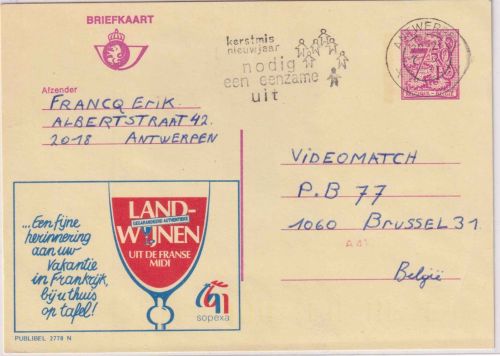 BRIEFKAART
kerstmis
nieuwjaar
nodig
een eenzame
uit
ANTWERPEN
Afzender
FRANCQ ERIK.
ALBERTSTRAAT 42.
2018 ANTWERPEN
VIDEOMATCH
P.B 77
1060 BRUSSEL 31
België
...Een fijne
herinnering
aan uw
vakantie
in Frankrijk,
bij u thuis
op tafel!
LAND-
GEGARANDEERDE AUTHENTIEKE
WIJNEN
UIT DE FRANSE
MIDI
sopexa
PUBLIBEL 2778 N